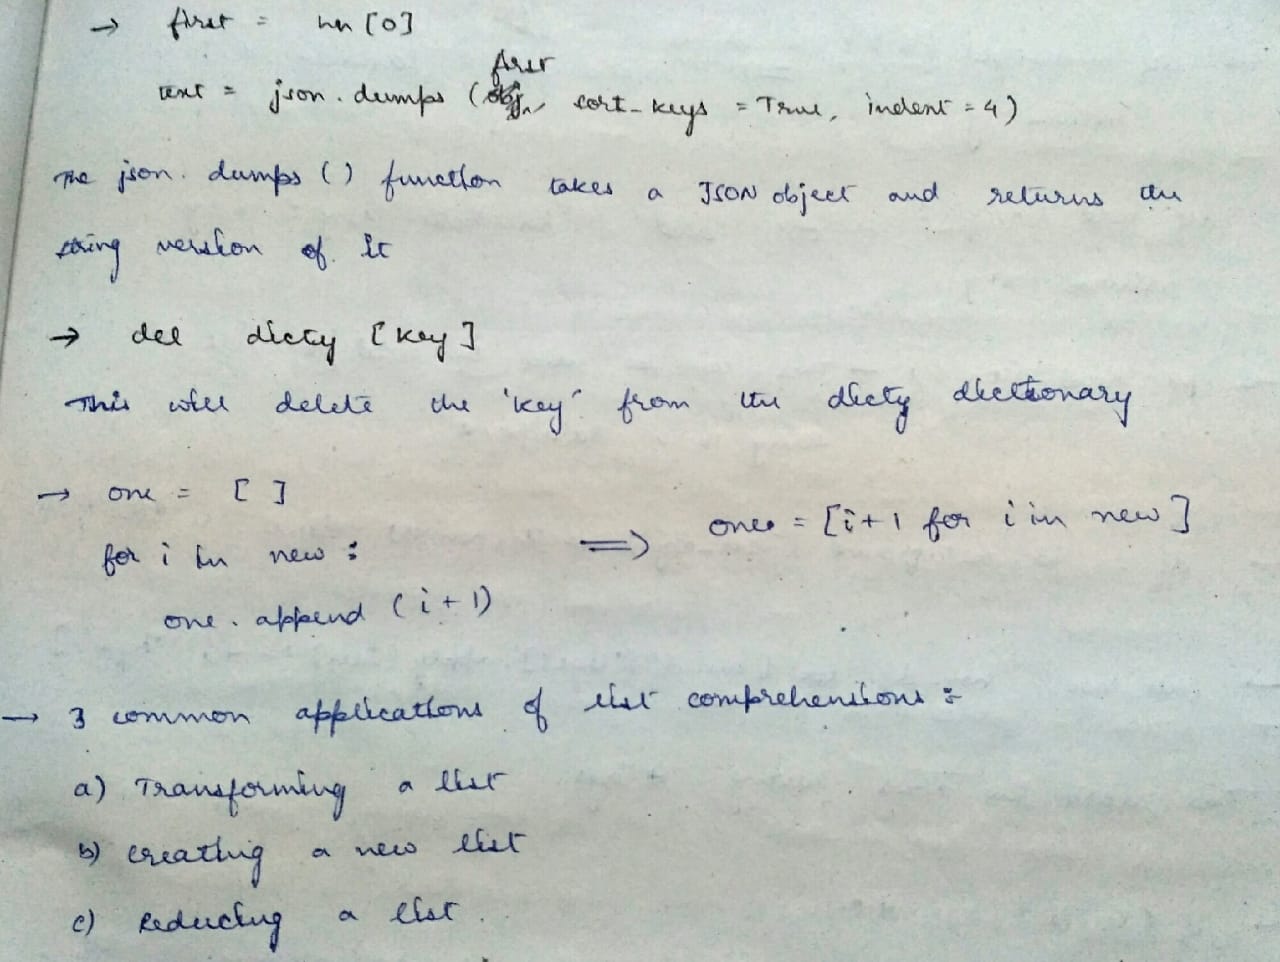 → first = hn [0]
first
text = json.dumps (obj, sort_keys = True, indent = 4)
The json.dumps () function takes a JSON object and returns the
string version of it
→ del dicty [key]
This will delete the 'key' from the dicty dictionary
→ one = [ ]
for i in new :
one.append (i+1)
⟹ one = [i+1 for i in new]
→ 3 common applications of list comprehensions :-
a) Transforming a list
b) creating a new list
c) Reducing a list.